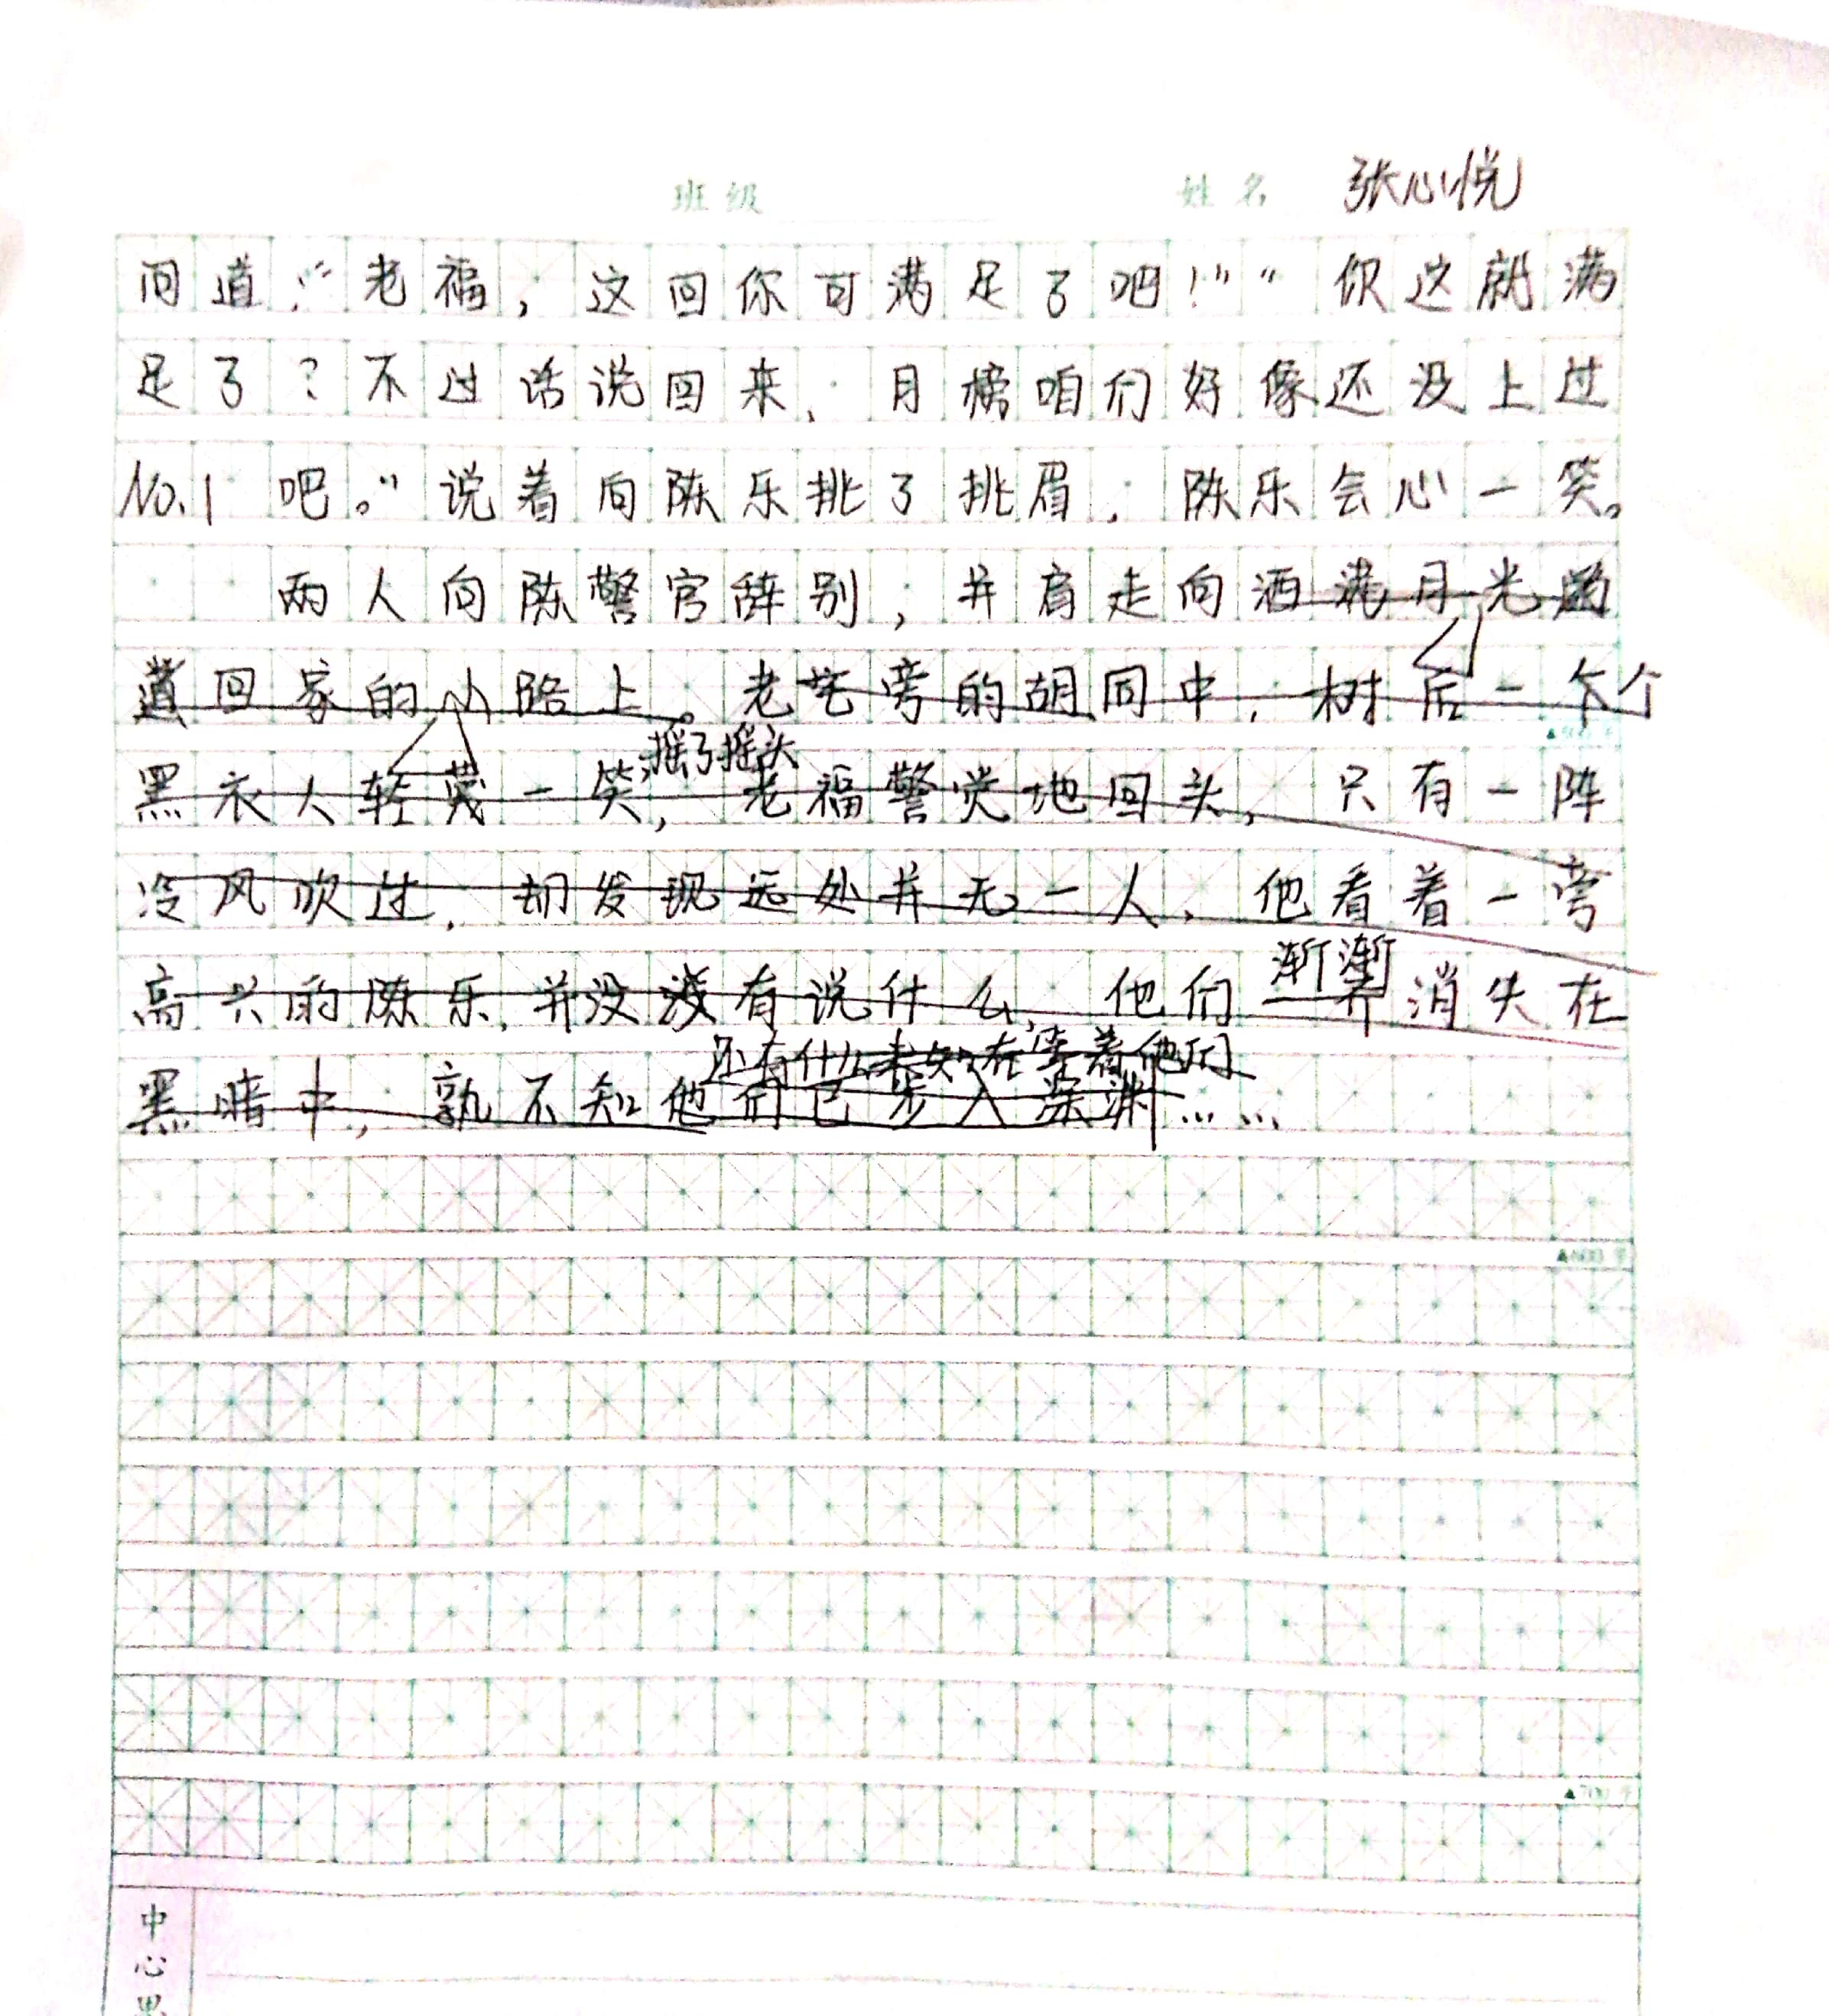 班级 姓名 张心悦
问道：“老福，这回你可满足了吧！”“你这就满
足了？不过话说回来，月榜咱们好像还没上过
No.1吧。”说着向陈乐挑了挑眉，陈乐会心一笑。
两人向陈警官辞别，并肩走向洒满月光的
道回家的小路上。老宅旁的胡同中，树后一个
黑衣人轻蔑一笑，摇了摇头，老福警觉地回头，只有一阵
冷风吹过，却发现远处并无一人，他看着一旁
高兴的陈乐，并没有说什么，他们渐渐消失在
还有什么未知在等着他们
黑暗中，孰不知他们已步入深渊……
▲600字
▲700字
中
心
思